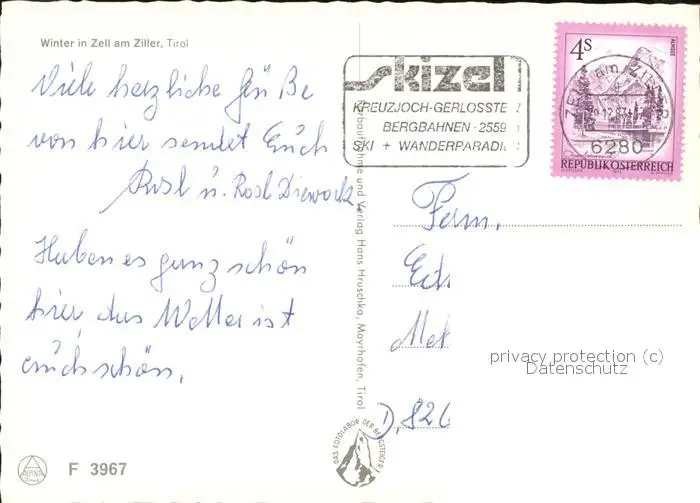 Winter in Zell am Ziller, Tirol
Viele herzliche Grüße
von hier sendet Euch
u. Rosl
Haben es ganz schön
hier, das Wetter ist
auch schön.
skizel
KREUZJOCH-GERLOSSTE
BERGBAHNEN · 2559
SKI + WANDERPARADI
4S
ALMSEE
ZELL am ZI
6280
REPUBLIK ÖSTERREICH
Fam.
D, 826
privacy protection (c)
Datenschutz
und Verlag Hans Hruschka, Mayrhofen, Tirol
DAS FOTOLABOR DER BERGSTEIGER
ALPINA
F 3967